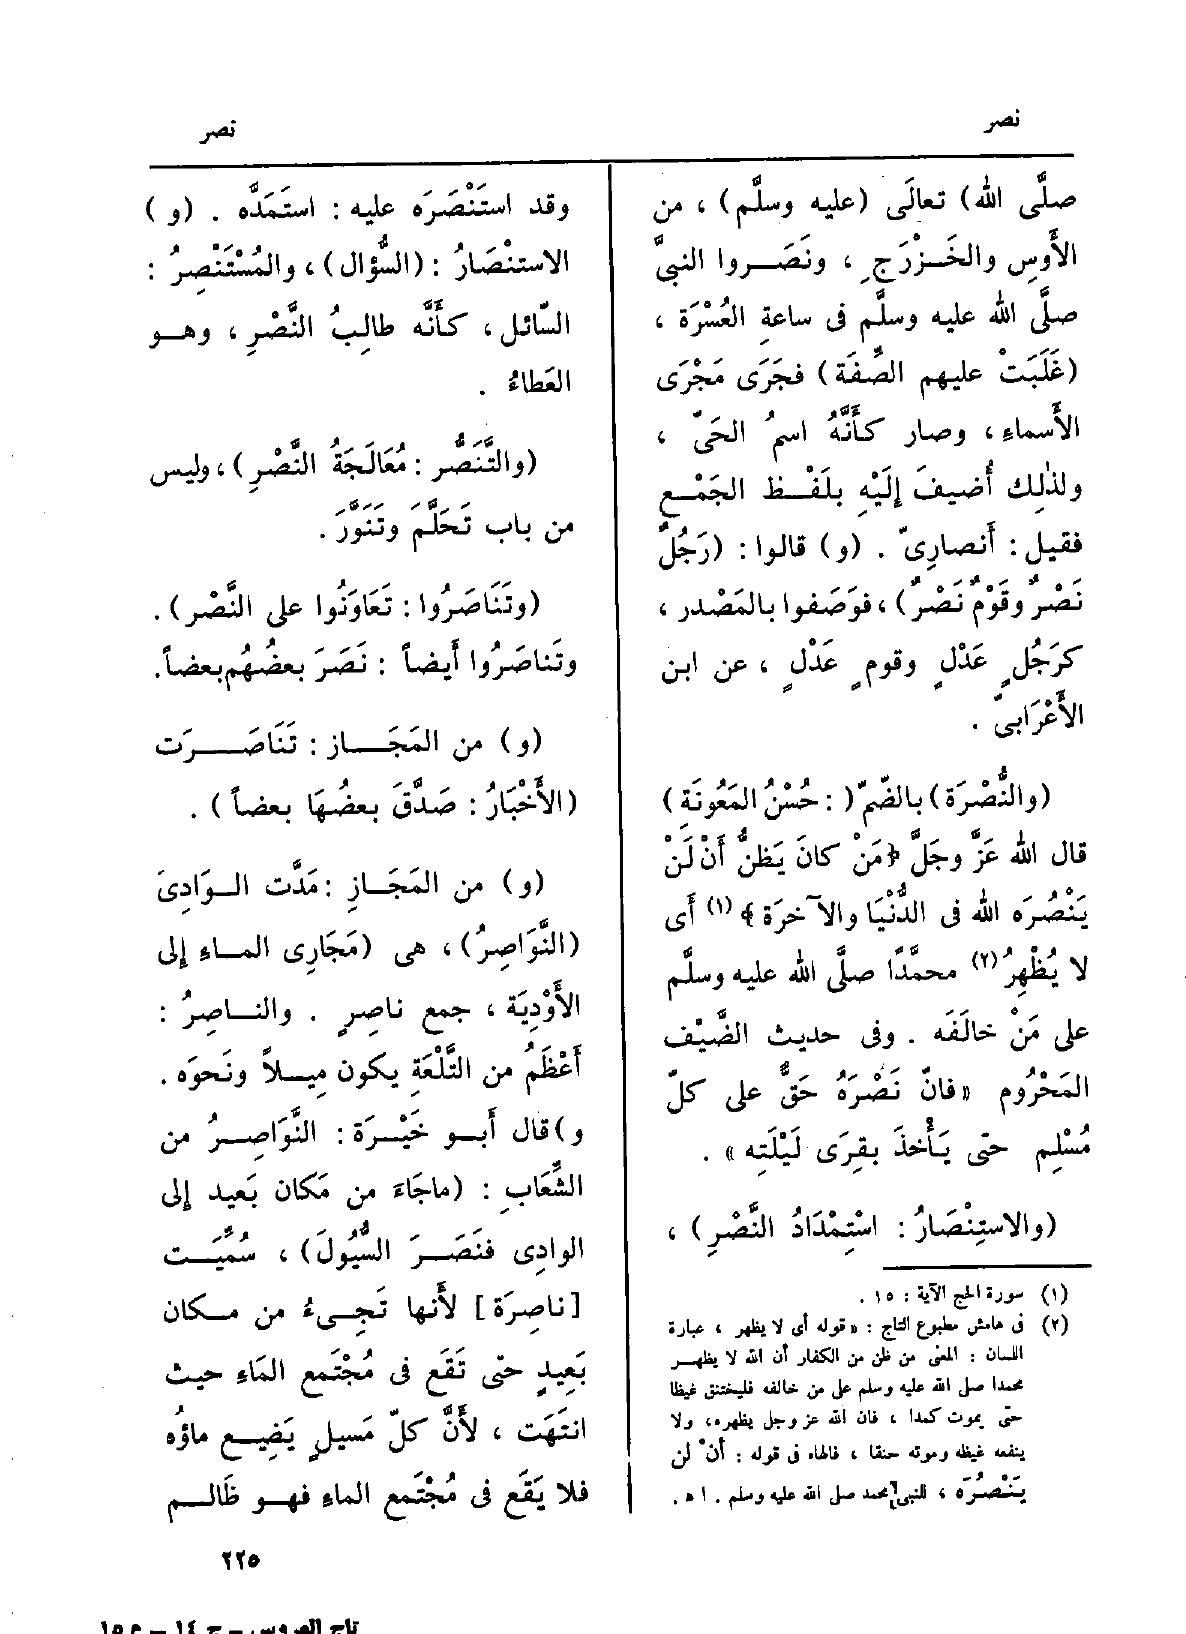 نصر
نصر
صلَّى الله) تعالَى (عليه وسلَّم) ، من
الأَوسِ والخَزْرَجِ ، ونَصَروا النبىَّ
صلَّى الله عليه وسلَّم فى ساعةِ العُسْرَة ،
(غَلَبَتْ عليهم الصِّفَة) فجَرَى مَجْرَى
الأَسماءِ ، وصار كأَنَّهُ اسمُ الحَىّ ،
ولذٰلِك أُضيفَ إِلَيْهِ بلَفْظ الجَمْعِ
فقيل : أَنصارىّ . (و) قالوا : (رَجُلٌ
نَصْرٌ وقَوْمٌ نَصْرٌ) ، فوَصَفوا بالمَصْدر ،
كرَجُلٍ عَدْلٍ وقومٍ عَدْلٍ ، عن ابن
الأَعْرَابىّ .
(والنُّصْرَة) بالضّمّ ( : حُسْنُ المَعُونَةِ)
قال الله عَزَّ وجَلَّ ﴿مَنْ كانَ يَظنُّ أَنْ لَنْ
يَنْصُرَه الله فى الدُّنْيَا والآخرَة﴾ (١) أَى
لا يُظْهِرُ (٢) محمَّدًا صلَّى الله عليه وسلَّم
على مَنْ خالَفَه . وفى حديث الضَّيْف
المَحْرُوم «فانّ نَصْرَهُ حَقٌّ على كلّ
مُسْلِم حتّى يَأْخذَ بقِرَى لَيْلَتِه» .
(والاستِنْصَارُ : اسْتِمْدَادُ النَّصْرِ) ،
(١) سورة الحج الآية : ١٥ .
(٢) فى هامش مطبوع التاج : «قوله أى لا يظهر ، عبارة
اللسان : المعنى من ظن من الكفار أن الله لا يظهر
محمدا صلى الله عليه وسلم على من خالفه فليختنق غيظا
حتى يموت كمدا ، فان الله عز وجل يظهره، ولا
ينفعه غيظه وموته حنقا ، فالهاء فى قوله : أن لن
يَنْصُرَه ، للنبى محمد صلى الله عليه وسلم . اه .
وقد استَنْصَرَه عليه : استَمَدَّه . (و)
الاستنْصَارُ : (السُّؤال) ، والمُسْتَنْصِرُ :
السَّائل ، كأَنَّه طالِبُ النَّصْرِ ، وهو
العَطاءُ .
(والتَّنَصُّر : مُعَالَجَةُ النَّصْرِ) ، وليس
من باب تَحَلَّمَ وتَنَوَّرَ .
(وتَنَاصَرُوا : تَعَاوَنُوا على النَّصْر) .
وتناصَرُوا أَيضاً : نَصَرَ بعضُهُم بعضاً.
(و) من المَجَاز : تَنَاصَرَت
(الأَخْبَارُ : صَدَّقَ بعضُهَا بعضاً) .
(و) من المَجَازِ : مَدَّت الوَادِىَ
(النَّوَاصِرُ) ، هى (مَجَارِى الماءِ إِلى
الأَوْدِيَة ، جمع ناصِرٍ . والناصِرُ :
أَعْظَمُ من التَّلْعَةِ يكون مِيلاً ونَحوَه .
و)قال أَبو خَيْرَة : النَّوَاصِرُ من
الشِّعَابِ : (ماجَاءَ من مَكان بَعيد إِلى
الوادِى فنَصَرَ السُّيُولَ) ، سُمِّيَت
[ناصِرَة] لأَنها تَجِىءُ من مكان
بَعِيدٍ حتّى تَقَع فى مُجْتَمع المَاءِ حيث
انتَهَت ، لأَنَّ كلّ مَسيلٍ يَضِيع ماؤُه
فلا يَقَع فى مُجْتَمع الماءِ فهو ظَالم
٢٢٥
تاج العروس – ج ١٤ – م ١٥